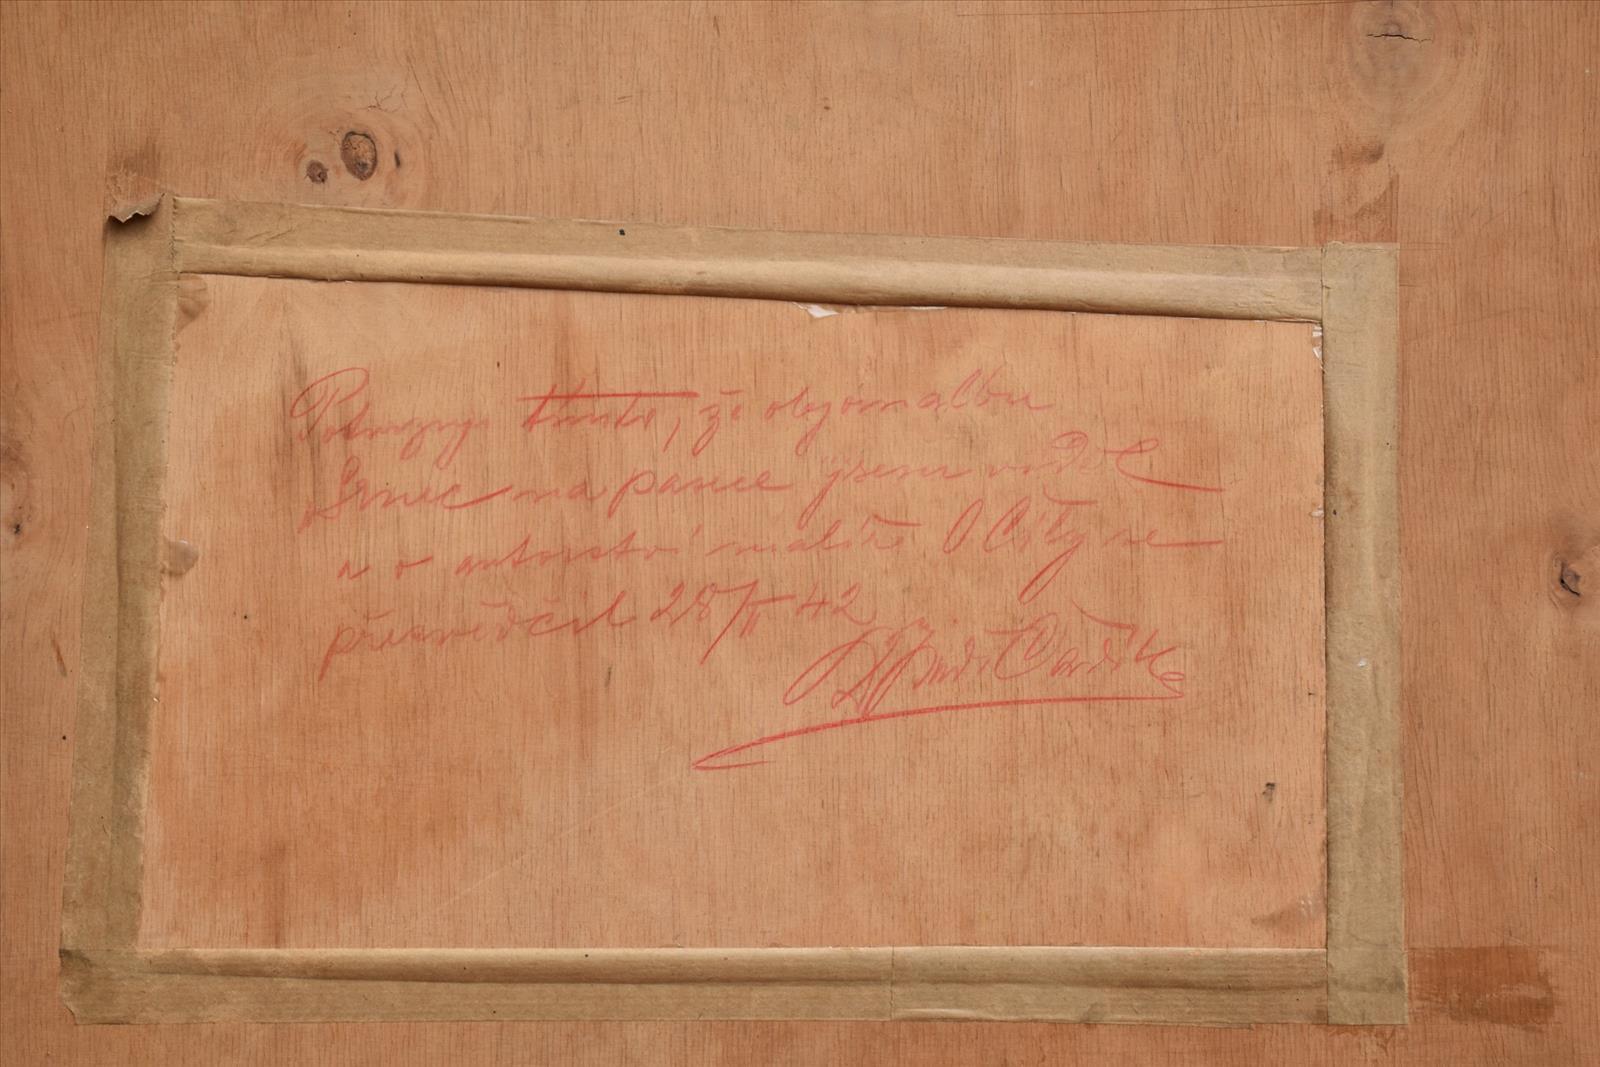 Potvrzuji tímto, že olejomalbu
Srnec na pasece jsem viděl
a o autorství malíře O Cihly se
přesvědčil 28/II 42